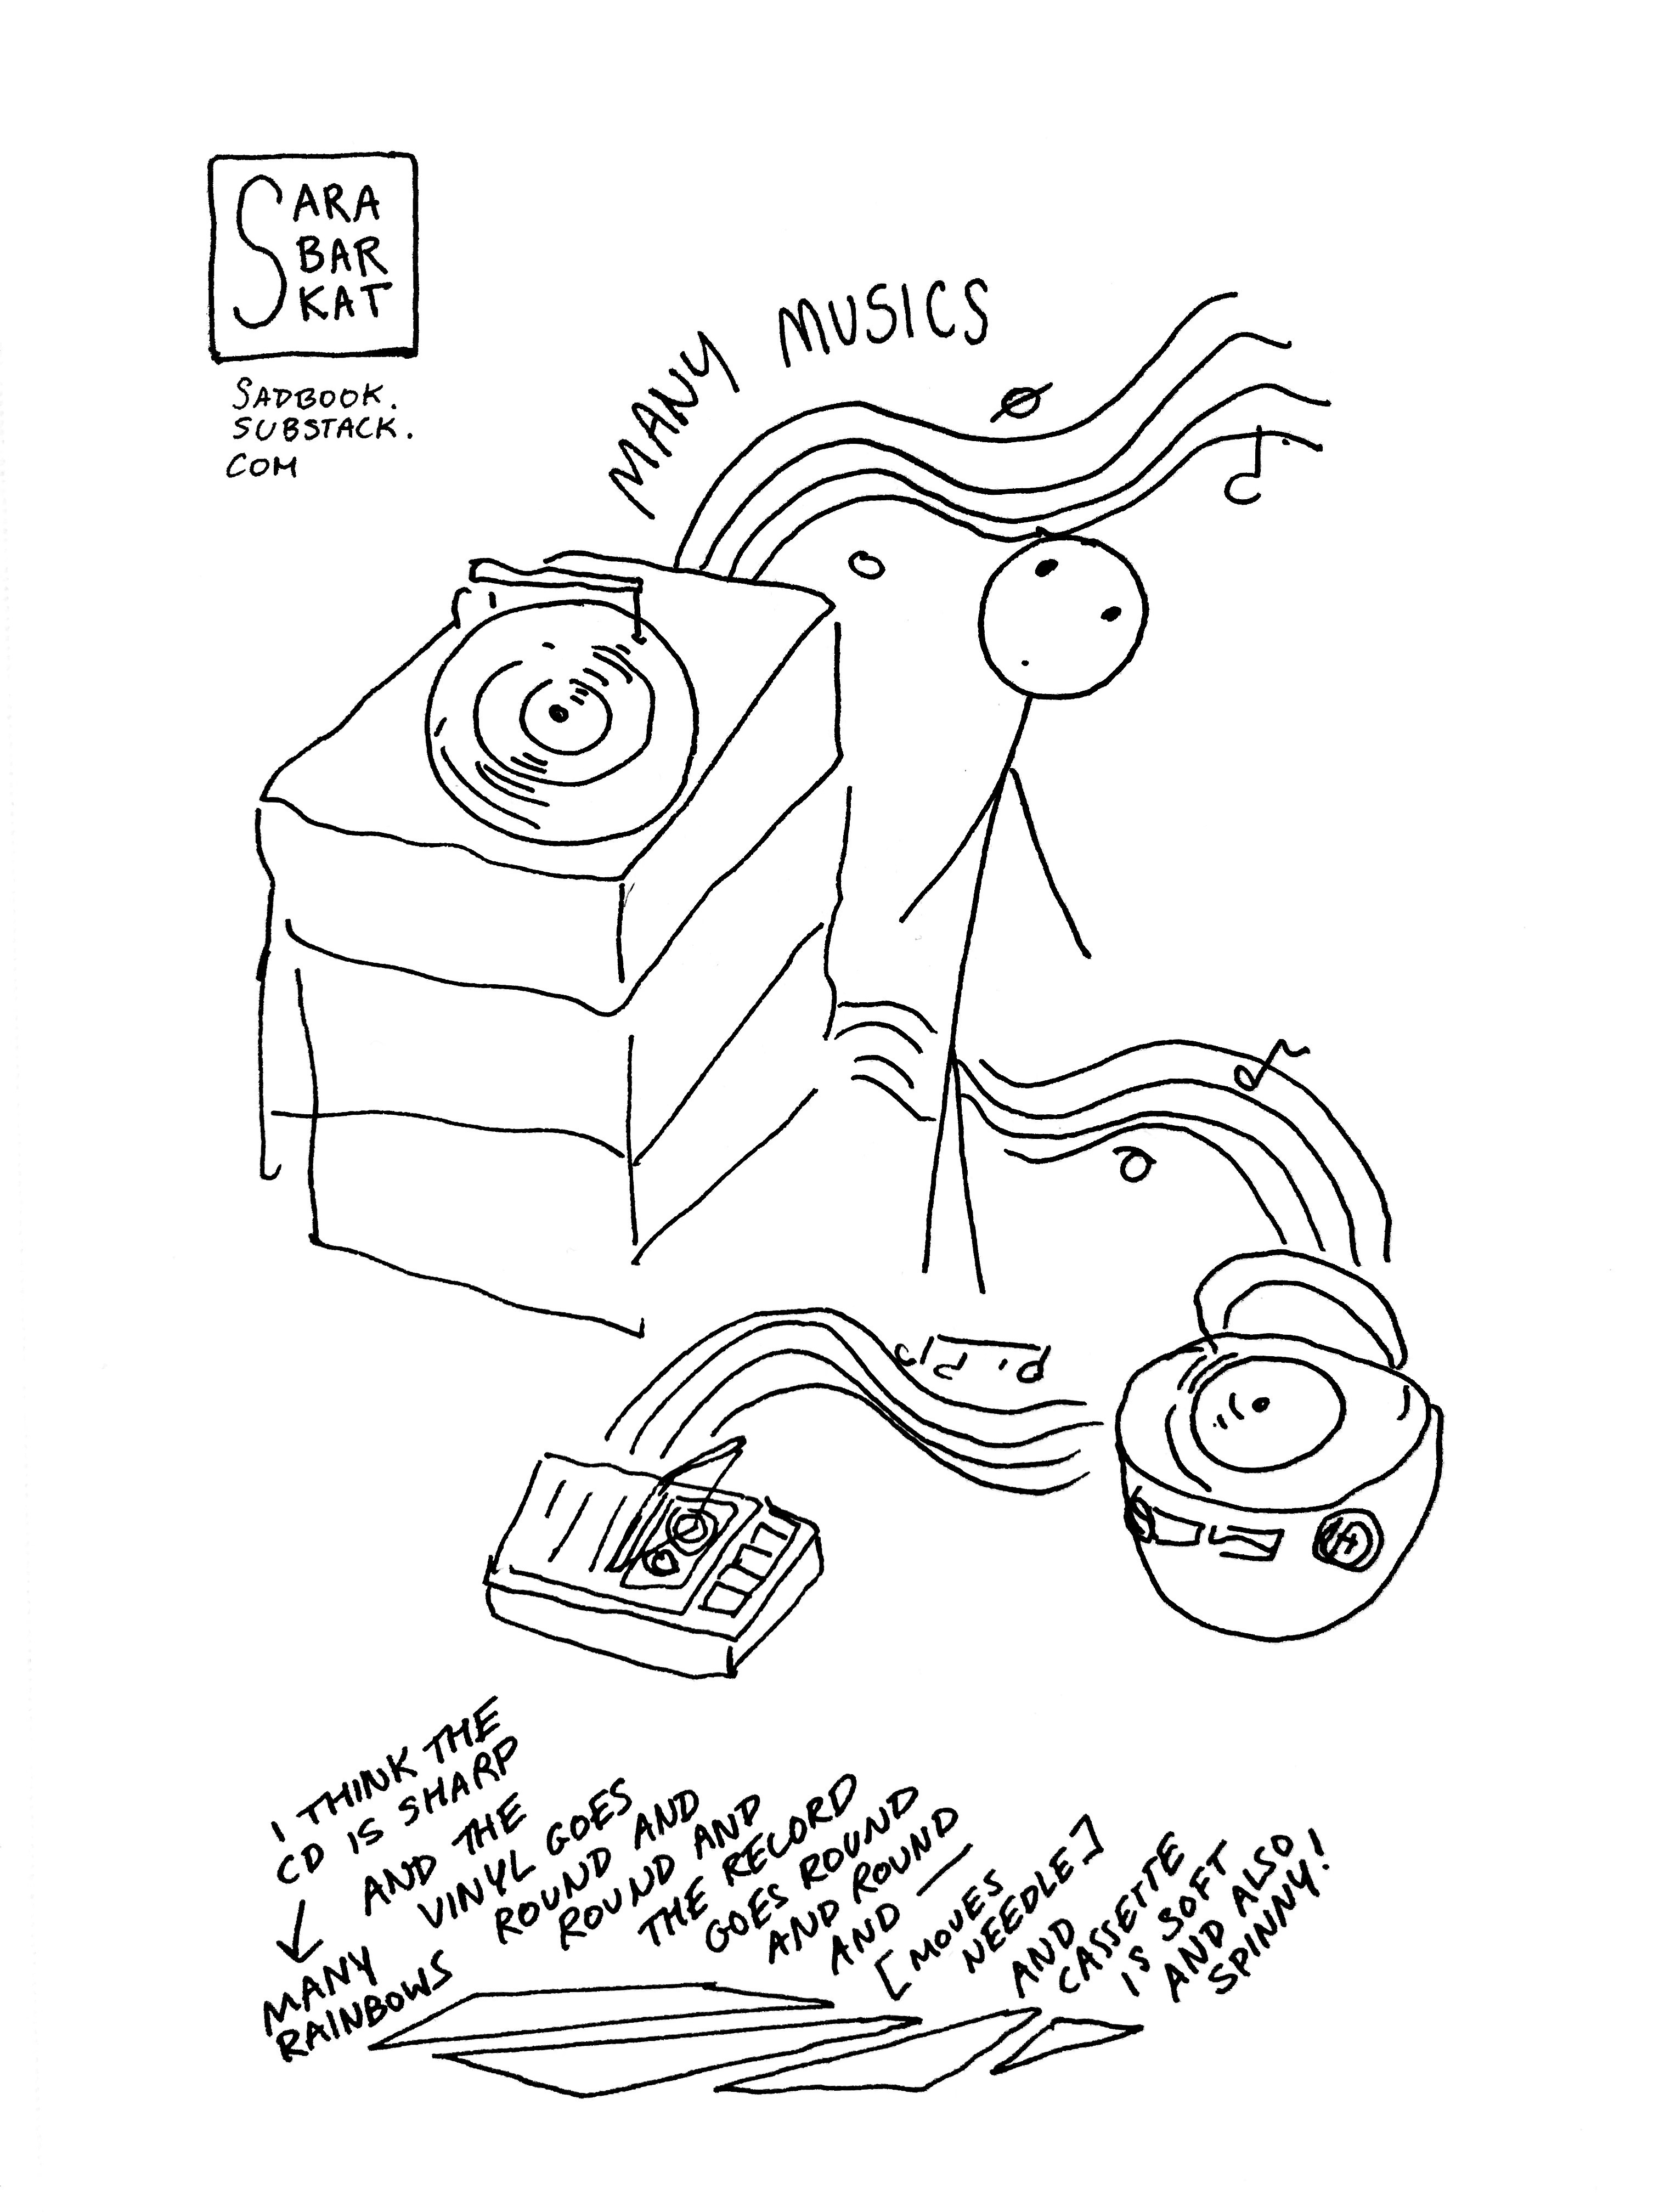 SARA
BAR
KAT
SADBOOK.
SUBSTACK.
COM
MANY MUSICS
I THINK THE
CD IS SHARP
↓
MANY
RAINBOWS
AND THE
VINYL GOES
ROUND AND
ROUND AND
THE RECORD
GOES ROUND
AND ROUND
AND —
[MOVES
NEEDLE]
AND
CASSETTE
IS SOFT
AND ALSO
SPINNY!